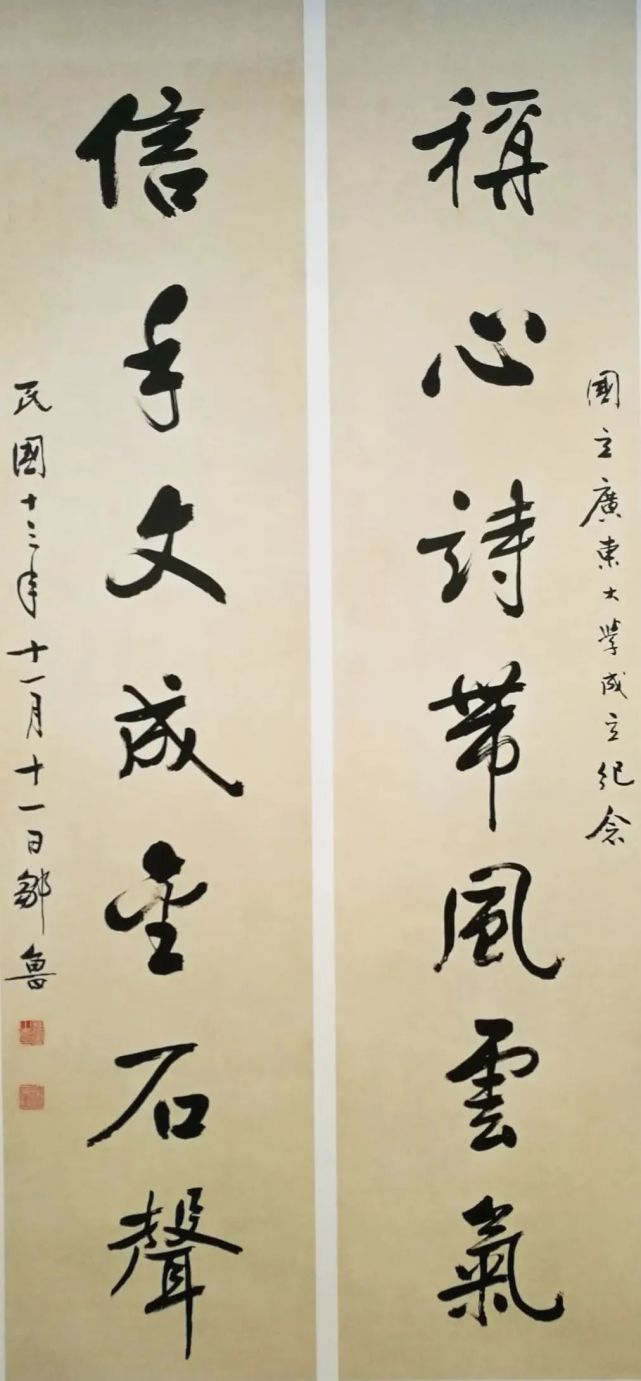 國立廣東大學成立紀念
稱心詩帶風雲氣
信手文成金石聲
民國十三年十一月十一日鄒魯